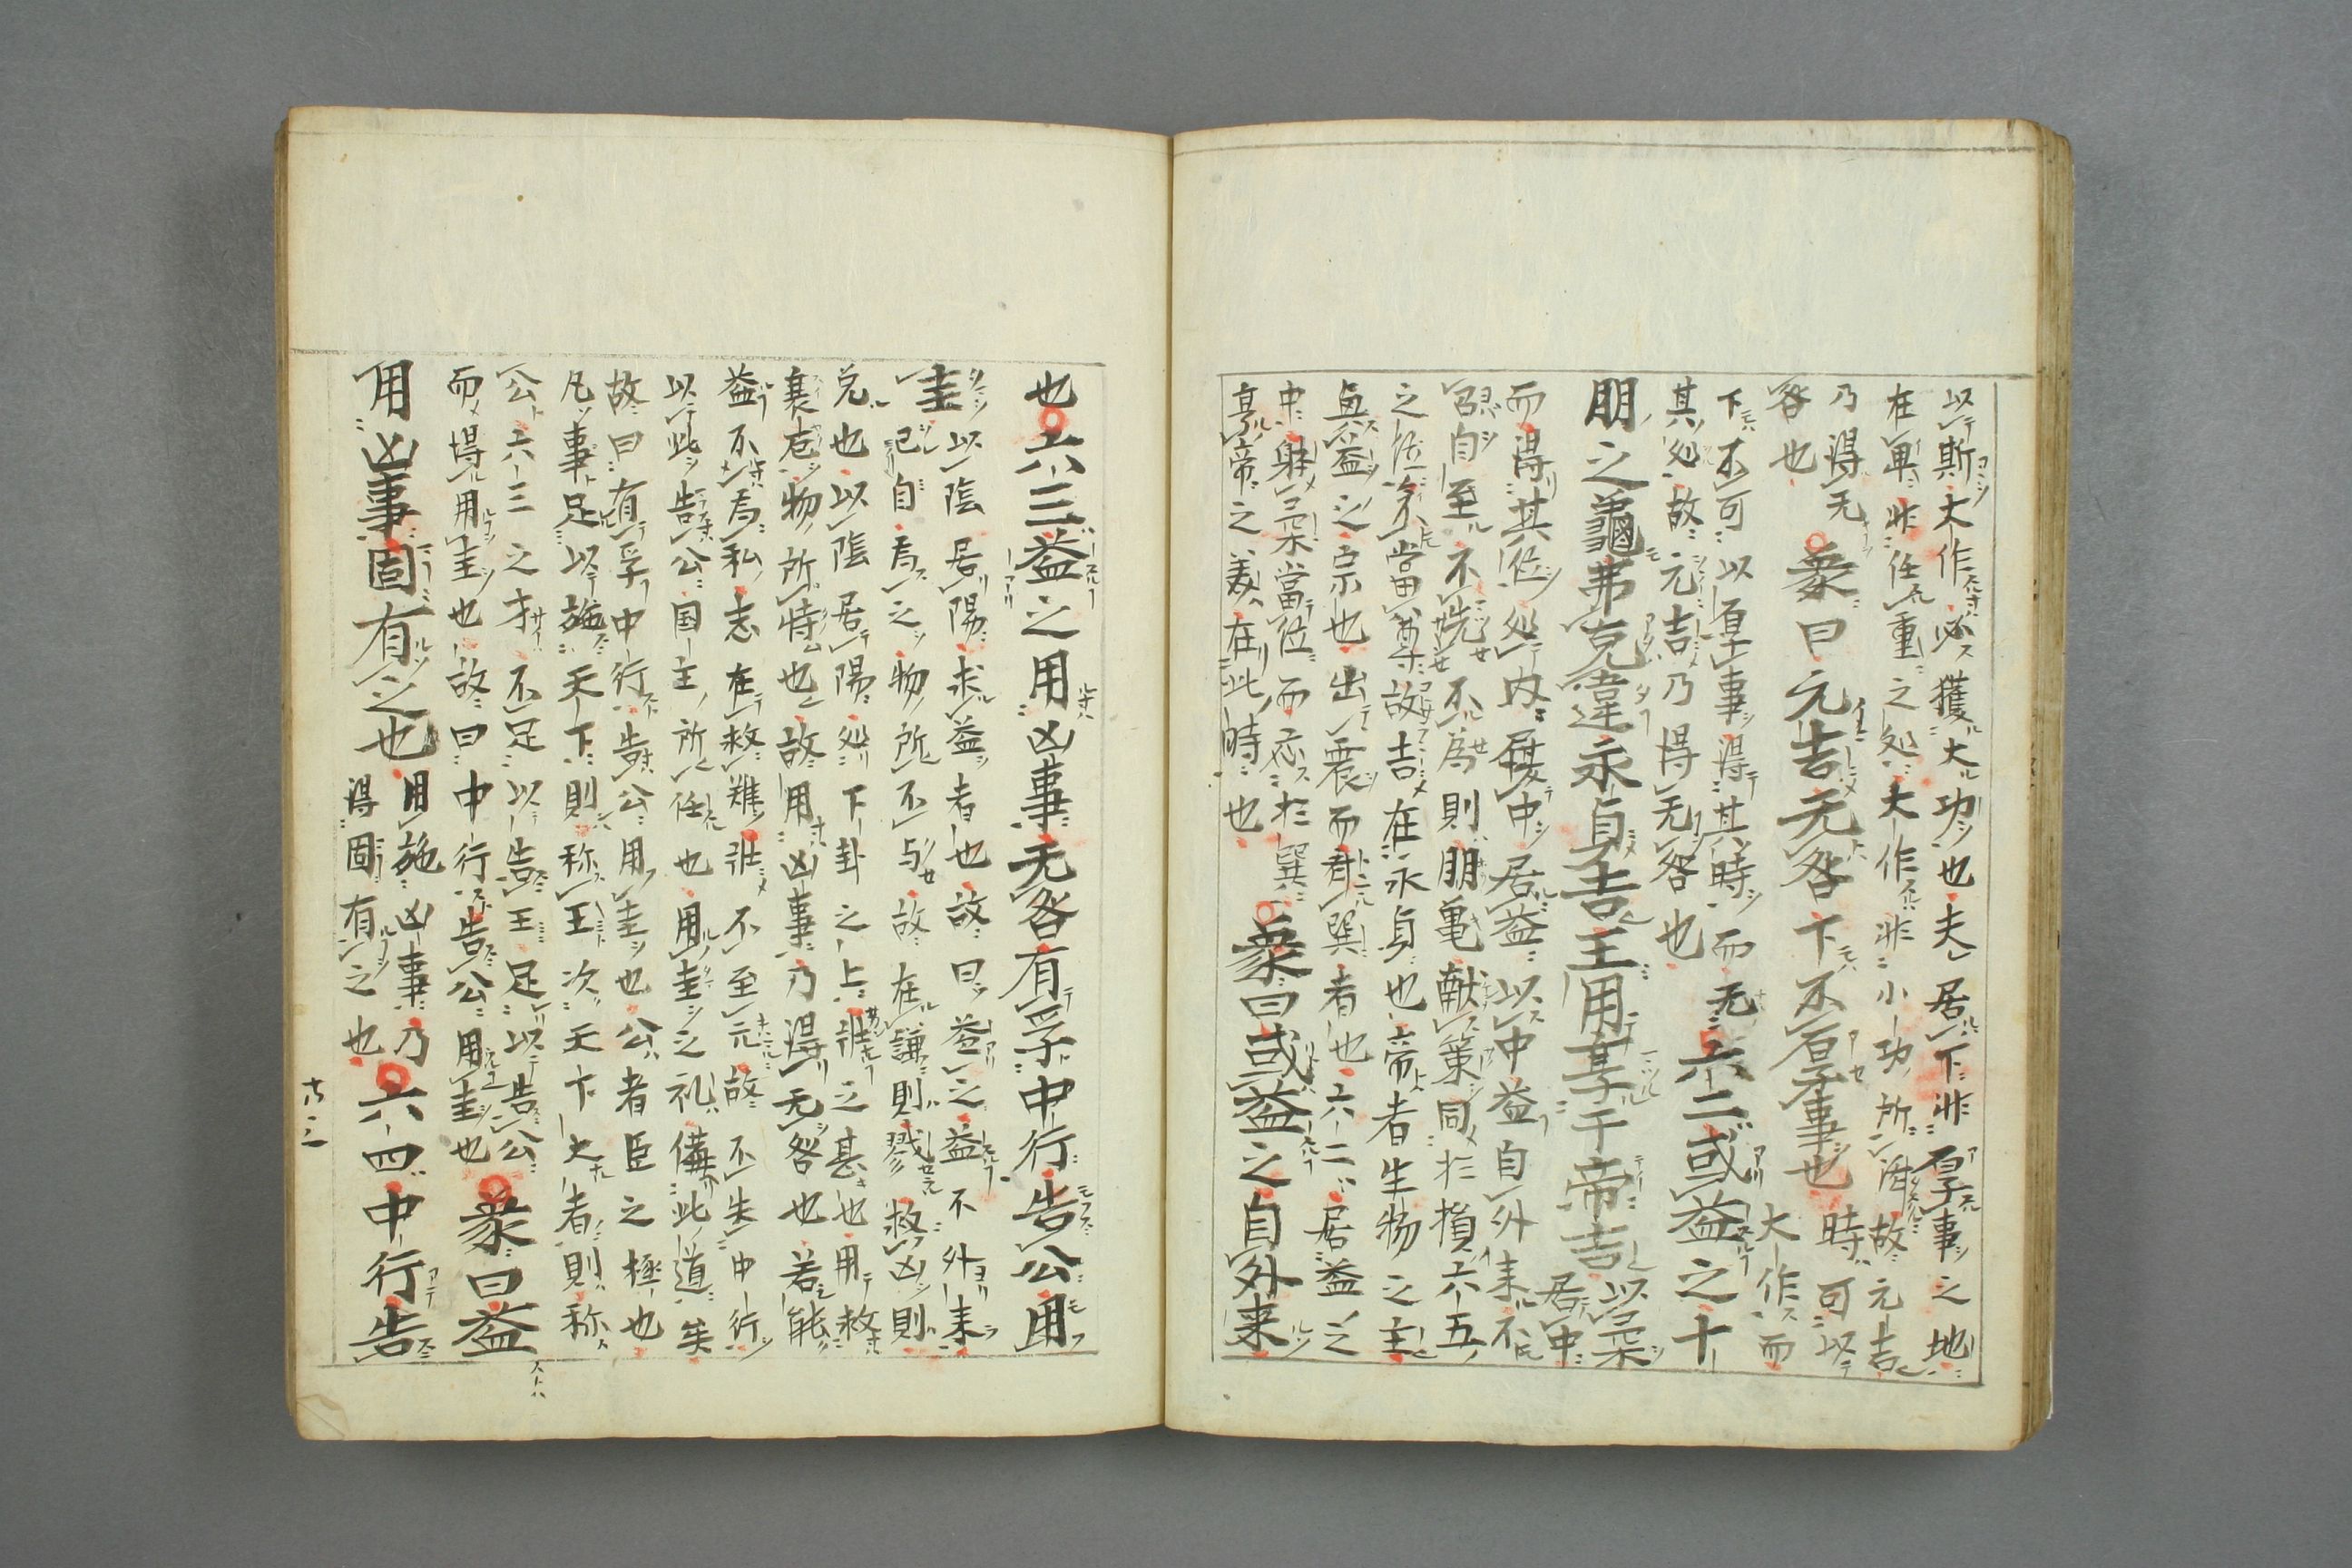 以斯大作必獲大功也夫居下非厚事之地
在卑非任重之処大作非小功所済故元吉
乃得无咎也
象曰元吉无咎下不厚事也
時可以大作而下不可以厚事得其時而无
其処故元吉乃得无咎也
六二或益之十
朋之龜弗克違永貞吉王用享于帝吉
以柔居中
而得其位処内履中居益以中益自外来不
召自至不先不為則朋亀献策同於損六五
之位位不當尊故吉在永貞也帝者生物之主
興益之宗也出震而齊巽者也六二居益之
中軆柔當位而応於巽
享帝之美在此時也
象曰或益之自外来
也六三益之用凶事无咎有孚中行告公用
圭
以陰居陽求益者也故曰益之益不外来
己自為之物所不与故在謙則戮救凶則
免也以陰居陽処下卦之上壯之甚也用救
衰危物所恃也故用凶事乃得无咎也若能
益不為私志在救難壯不至亢故不失中行
以此告公国主所任也用圭之礼備此道矣
故曰有孚中行告公用圭也公者臣之極也
凡事足以施天下則称王次天下之大者則称
公六三之才不足以告王足以告公
而得用圭也故曰中行告公用圭也
象曰益
用凶事固有之也
用施凶事乃
得固有之也
六四中行告